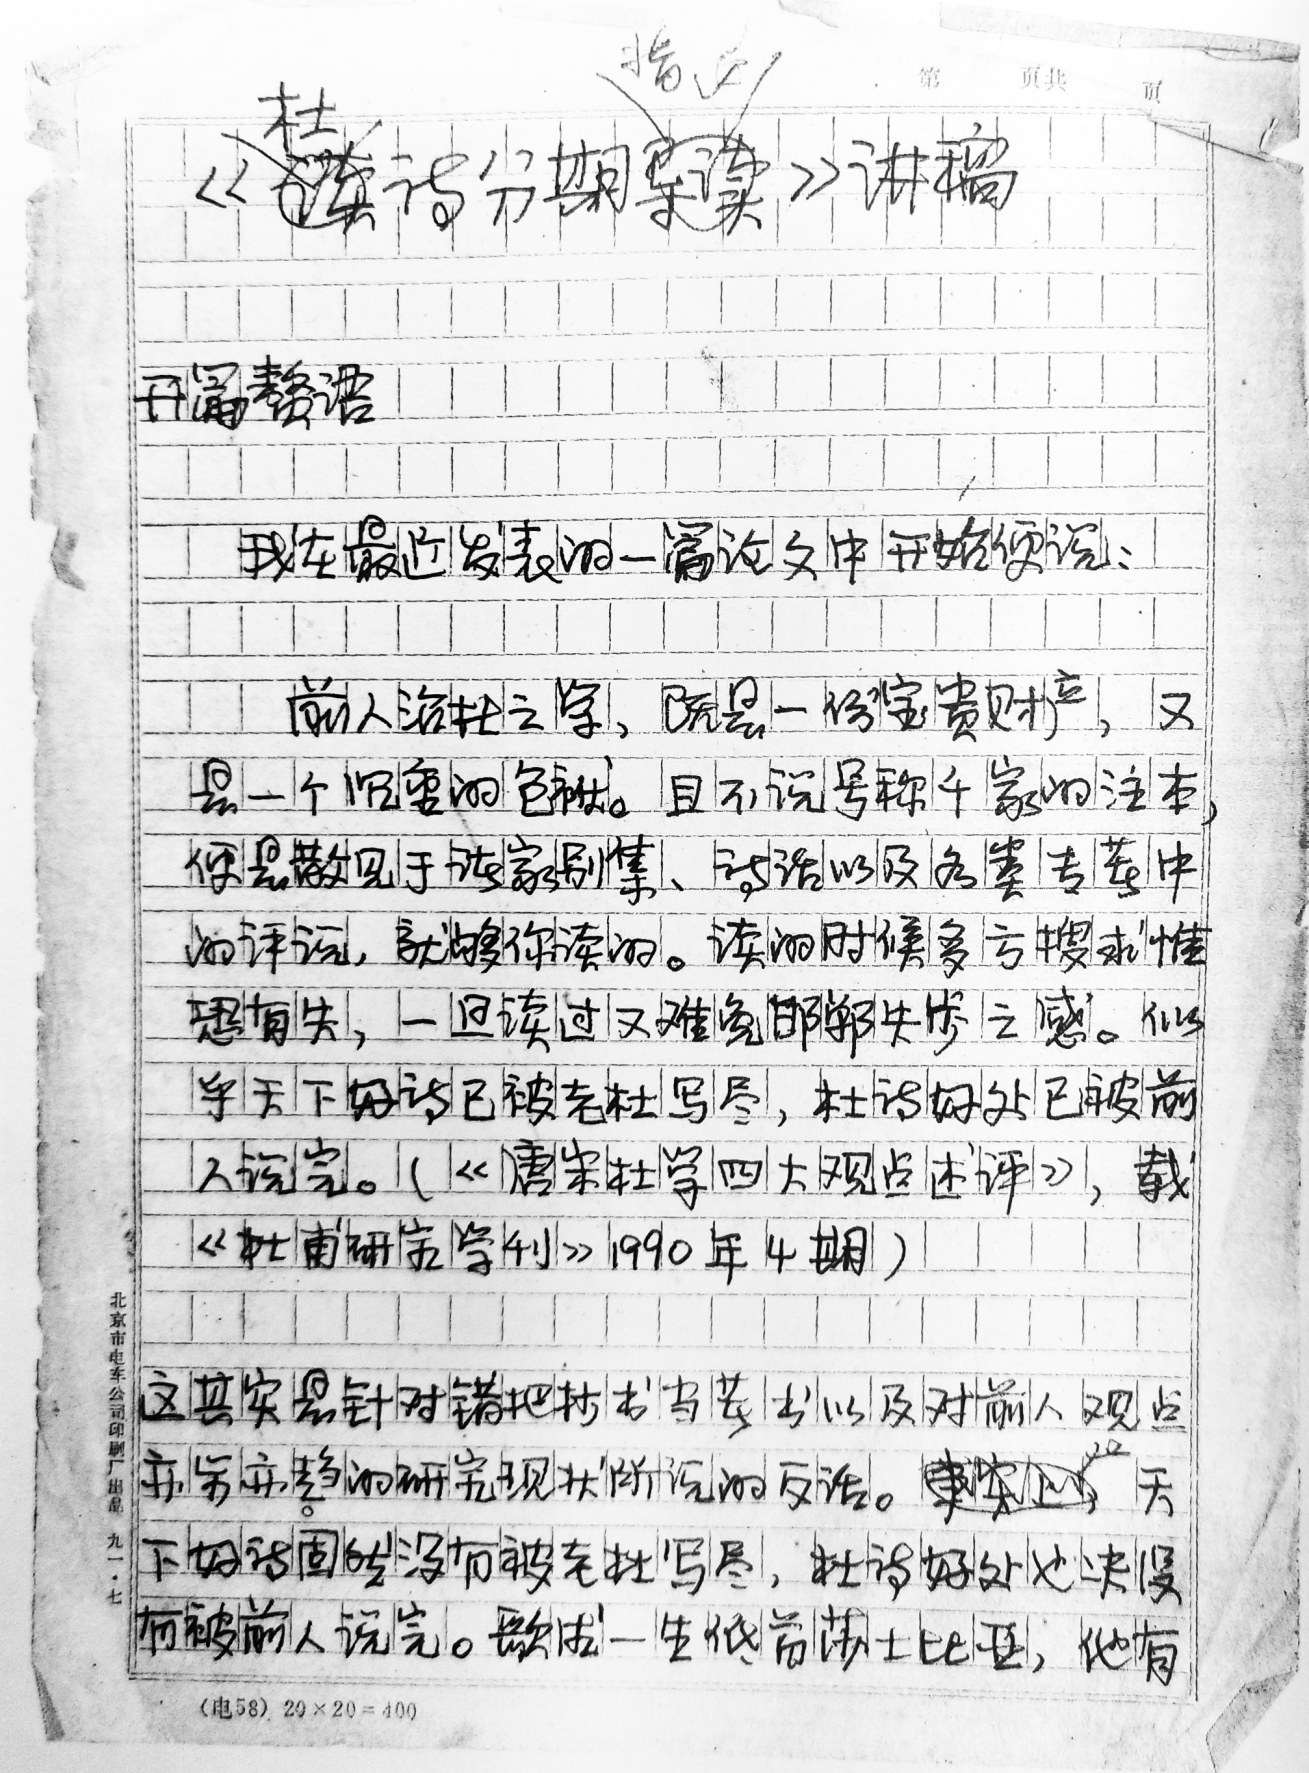 第 页共 页
杜
《读诗分期导读》讲稿
开篇赘语
我在最近发表的一篇论文中开始便说：
前人治杜之学，既是一份宝贵财产，又
是一个沉重的包袱。且不说号称千家的注本，
便是散见于诸家别集、诗话以及各类专著中
的评说，就够你读的。读的时候多方搜求惟
恐有失，一旦读过又难免邯郸失步之感。似
乎天下好诗已被老杜写尽，杜诗好处已被前
人说完。（《唐宋杜学四大观点述评》，载
《杜甫研究学刊》1990年4期）
这其实是针对错把抄书当著书以及对前人观点
亦步亦趋的研究现状所说的反话。事实上，天
下好诗固然没有被老杜写尽，杜诗好处也决没
有被前人说完。歌德一生低首莎士比亚，他有
北京市电车公司印刷厂出品 九一·七
（电58）20×20=400